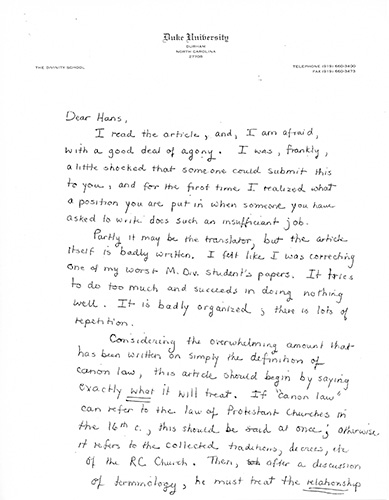 Duke University
DURHAM
NORTH CAROLINA
27706
THE DIVINITY SCHOOL
TELEPHONE (919) 660-3400
FAX (919) 660-3473
Dear Hans,
I read the article, and, I am afraid,
with a good deal of agony. I was, frankly,
a little shocked that someone could submit this
to you, and for the first time I realized what
a position you are put in when someone you have
asked to write does such an insufficient job.
Partly it may be the translator, but the article
itself is badly written. I felt like I was correcting
one of my worst M. Div. student's papers. It tries
to do too much and succeeds in doing nothing
well. It is badly organized; there is lots of
repetition.
Considering the overwhelming amount that
has been written on simply the definition of
canon law, this article should begin by saying
exactly what it will treat. If "canon law"
can refer to the law of Protestant Churches in
the 16th c., this should be said at once; otherwise
it refers to the collected traditions, decrees, etc
of the RC Church. Then, after a discussion
of terminology, he must treat the relationship